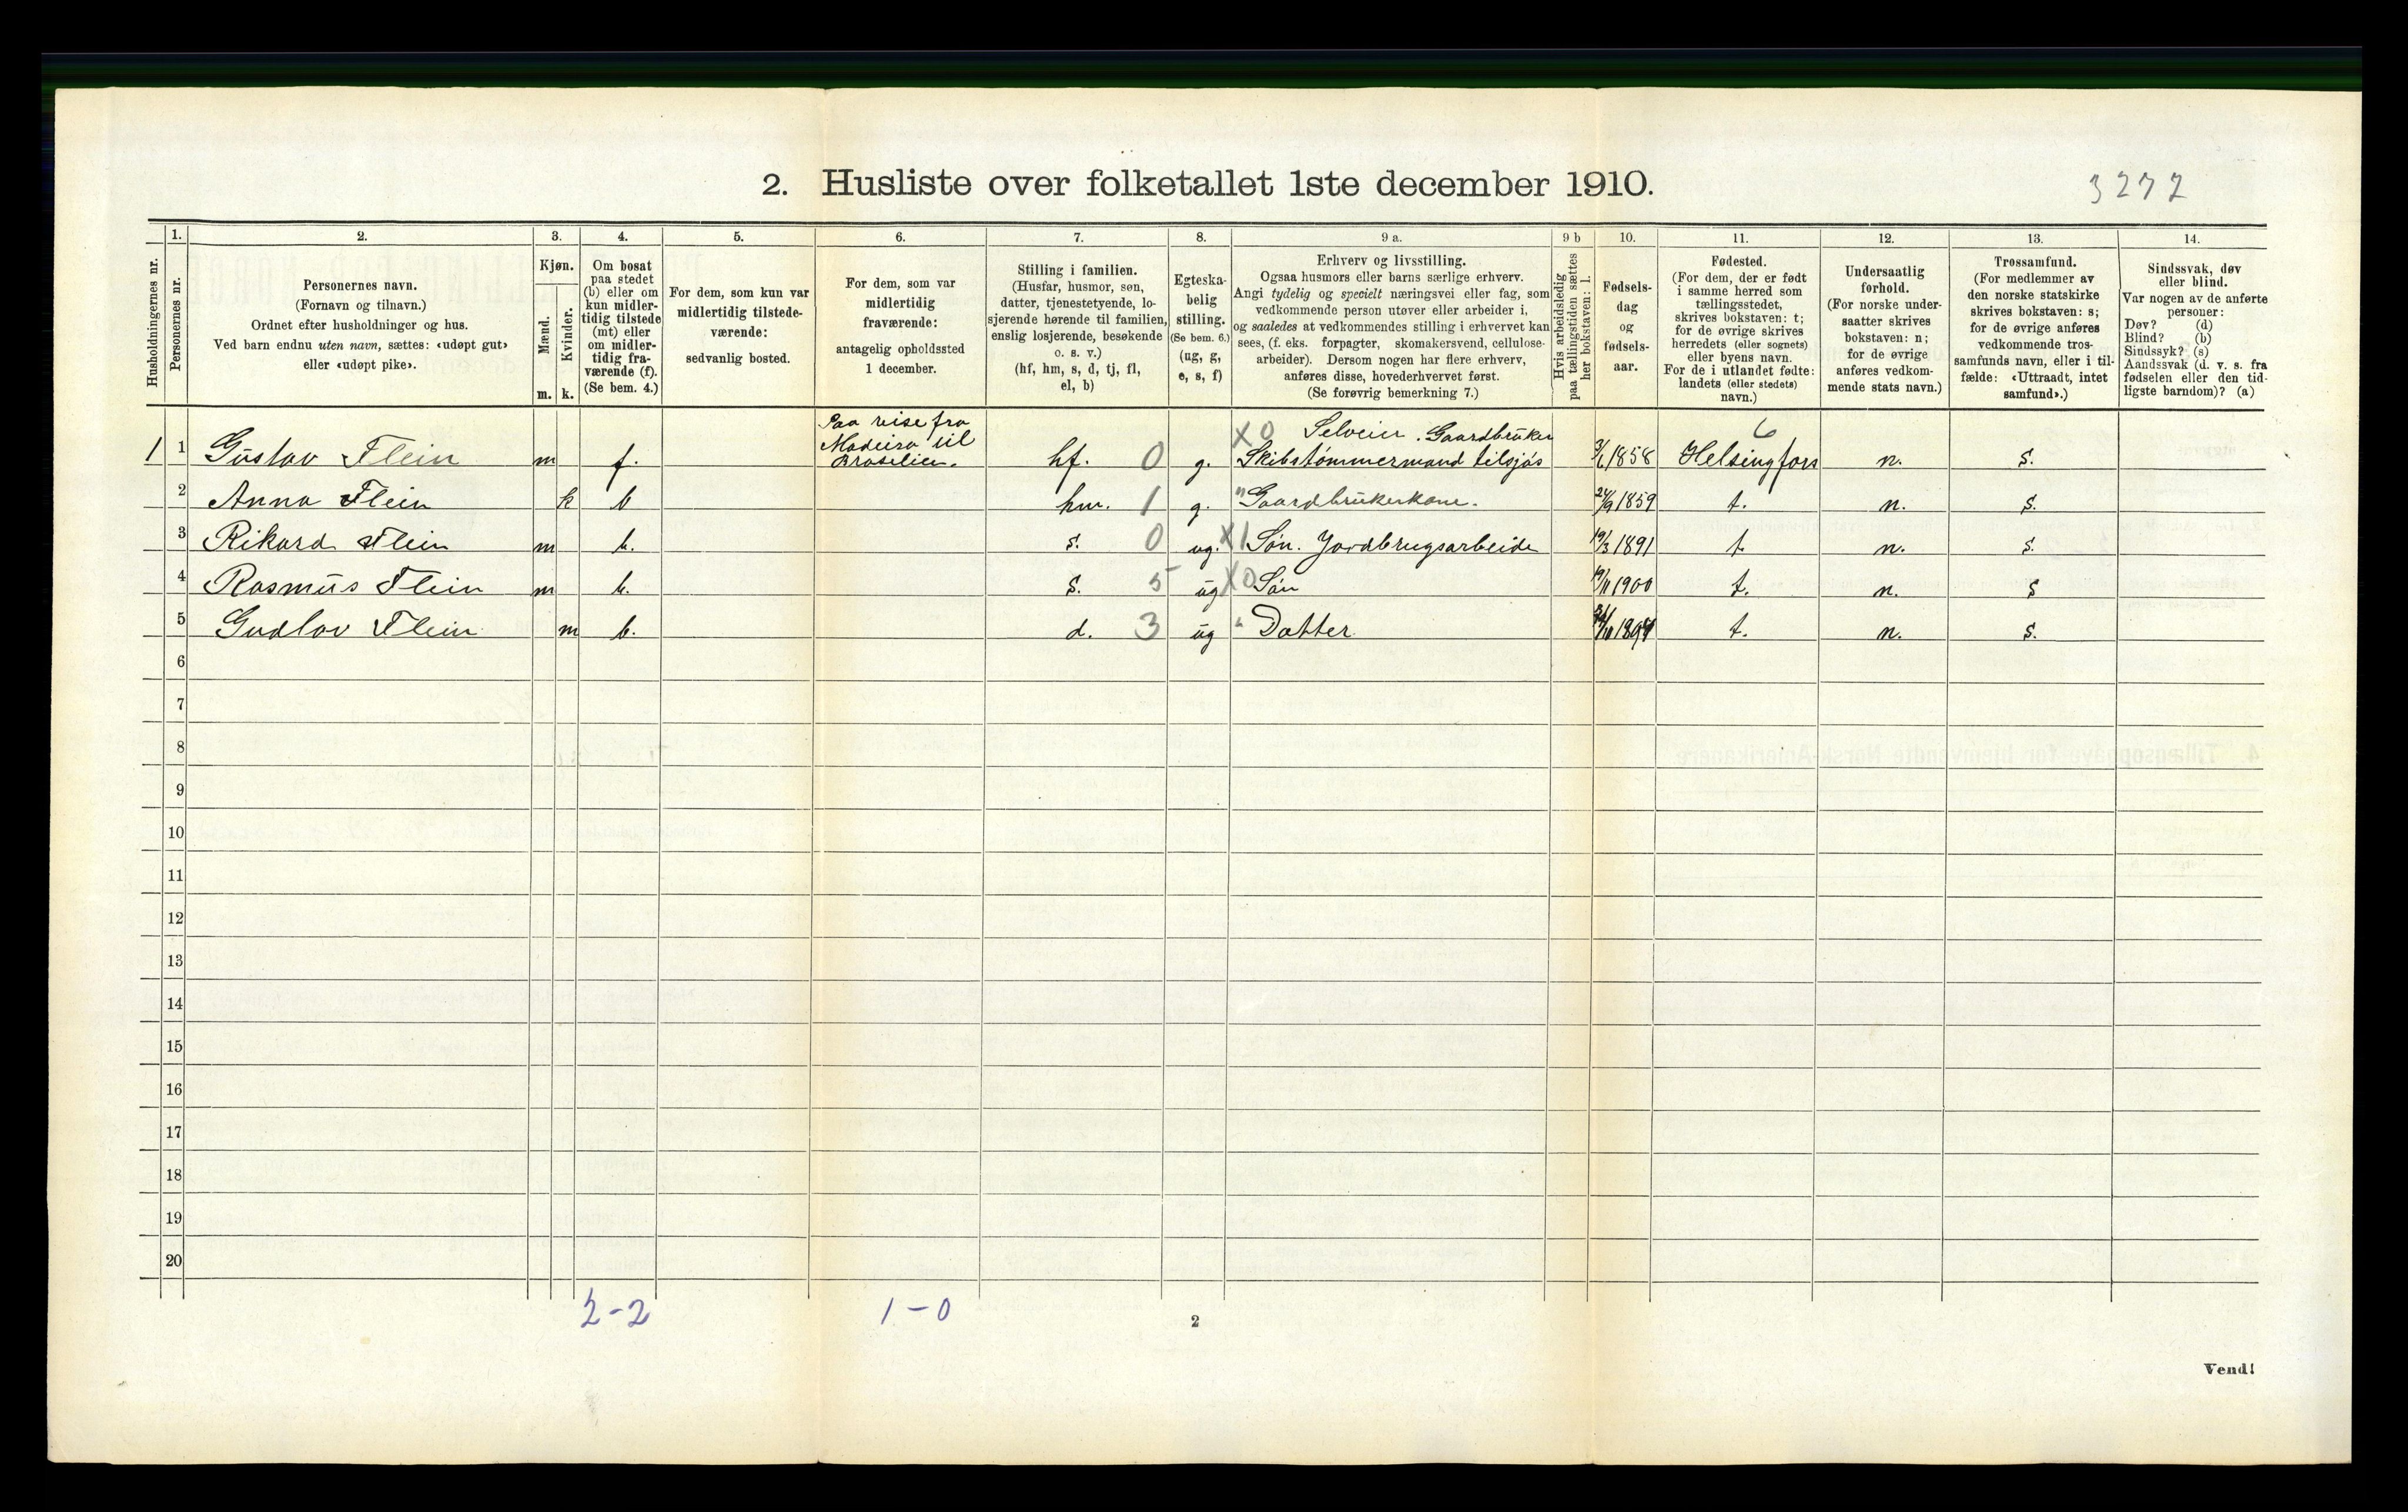 2. Husliste over folketallet 1ste december 1910.
3272
Husholdningernes nr.
1.
Personernes nr.
2.
Personernes navn.
(Fornavn og tilnavn.)
Ordnet efter husholdninger og hus.
Ved barn endnu uten navn, sættes: «udøpt gut»
eller «udøpt pike».
3.
Kjøn.
Mænd.
Kvinder.
m. k.
4.
Om bosat
paa stedet
(b) eller om
kun midler-
tidig tilstede
(mt) eller
om midler-
tidig fra-
værende (f).
(Se bem. 4.)
5.
For dem, som kun var
midlertidig tilstede-
værende:
sedvanlig bosted.
6.
For dem, som var
midlertidig
fraværende:
antagelig opholdssted
1 december.
7.
Stilling i familien.
(Husfar, husmor, søn,
datter, tjenestetyende, lo-
sjerende hørende til familien,
enslig losjerende, besøkende
o. s. v.)
(hf, hm, s, d, tj, fl,
el, b)
8.
Egteska-
belig
stilling.
(Se bem. 6.)
(ug, g,
e, s, f)
9 a.
Erhverv og livsstilling.
Ogsaa husmors eller barns særlige erhverv.
Angi tydelig og specielt næringsvei eller fag, som
vedkommende person utøver eller arbeider i,
og saaledes at vedkommendes stilling i erhvervet kan
sees, (f. eks. forpagter, skomakersvend, cellulose-
arbeider). Dersom nogen har flere erhverv,
anføres disse, hovederhvervet først.
(Se forøvrig bemerkning 7.)
9 b
Hvis arbeidsledig
paa tællingstiden sættes
her bokstaven: l.
10.
Fødsels-
dag
og
fødsels-
aar.
11.
Fødested.
(For dem, der er født
i samme herred som
tællingsstedet,
skrives bokstaven: t;
for de øvrige skrives
herredets (eller sognets)
eller byens navn.
For de i utlandet fødte:
landets (eller stedets)
navn.)
12.
Undersaatlig
forhold.
(For norske under-
saatter skrives
bokstaven: n;
for de øvrige
anføres vedkom-
mende stats navn.)
13.
Trossamfund.
(For medlemmer av
den norske statskirke
skrives bokstaven: s;
for de øvrige anføres
vedkommende tros-
samfunds navn, eller i til-
fælde: «Uttraadt, intet
samfund».)
14.
Sindssvak, døv
eller blind.
Var nogen av de anførte
personer:
Døv? (d)
Blind? (b)
Sindssyk? (s)
Aandssvak (d. v. s. fra
fødselen eller den tid-
ligste barndom)? (a)
Paa reise fra
Madeira til
Brasilien.
X0 Selveier. Gaardbruker 6
1 1 Gustav Flein m f. hf. 0 g. Skibstømmermand tilsjøs 3/6 1858 Helsingfors n. s.
2 Anna Flein k b hm. 1 g. " Gaardbrukerkone. 24/9 1859 t. n. s.
3 Rikard Flein m b. s. 0 ug. X1 Søn. Jordbrugsarbeide 19/3 1891 t. n. s.
4 Rasmus Flein m b. s. 5 ug X0 Søn 19/11 1900 t. n. s
5 Gudlav Flein m b. d. 3 ug " Datter t. n. s.
6
7
8
9
10
11
12
13
14
15
16
17
18
19
20
2-2 1-0
2
Vend!